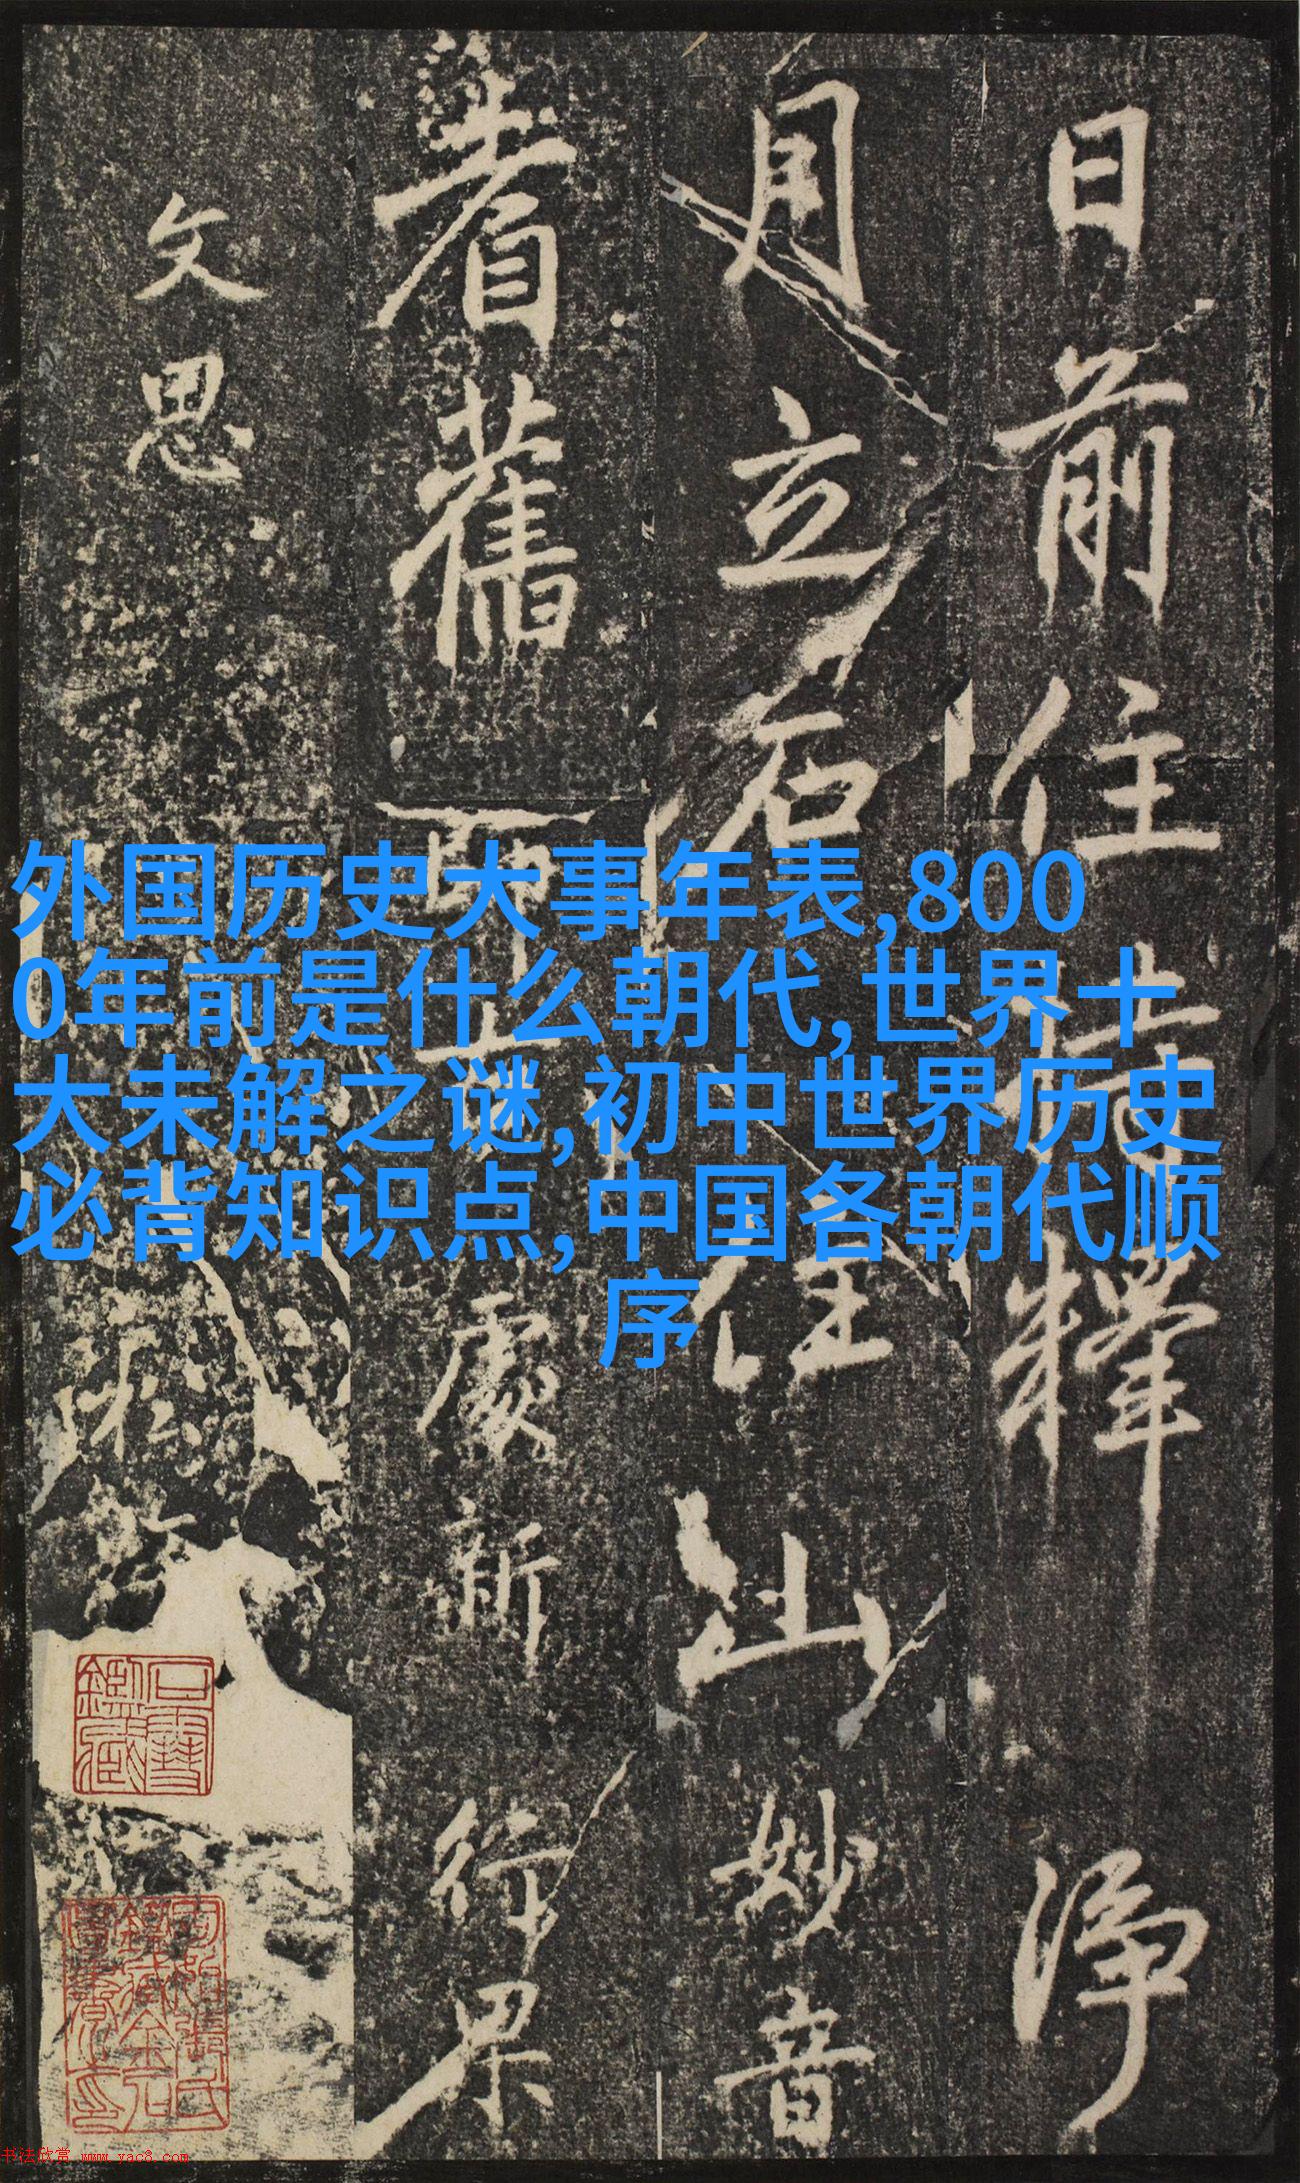 日前住持釋淨
月立石
住山妙音
耆舊
處新
行果
文思
外国历史大事年表,800
0年前是什么朝代,世界十
大未解之谜,初中世界历史
必背知识点,中国各朝代顺
序
书法欣赏 www.yac8.com